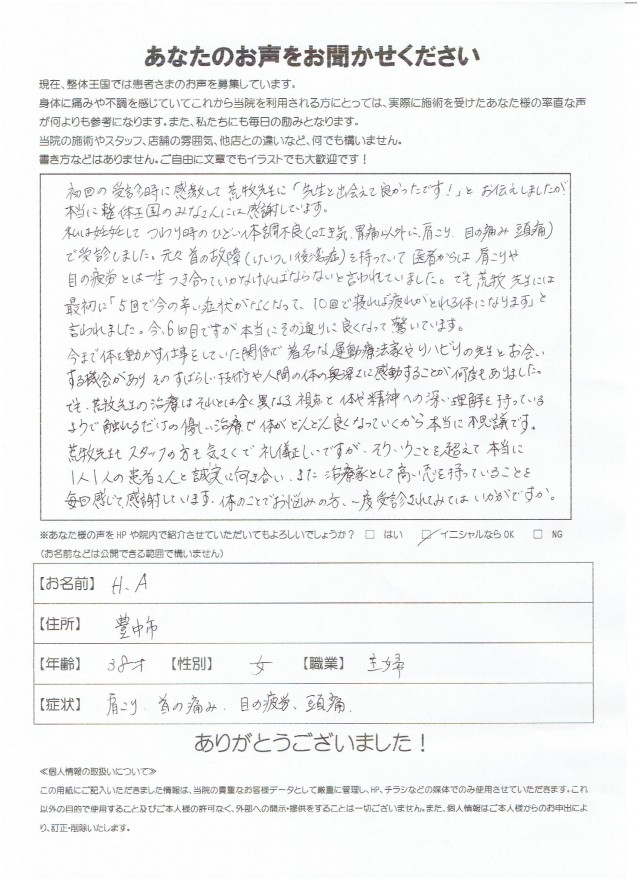 あなたのお声をお聞かせください
現在、整体王国では患者さまのお声を募集しています。
身体に痛みや不調を感じていてこれから当院を利用される方にとっては、実際に施術を受けたあなた様の率直な声
が何よりも参考になります。また、私たちにも毎日の励みとなります。
当院の施術やスタッフ、店舗の雰囲気、他店との違いなど、何でも構いません。
書き方などはありません。ご自由に文章でもイラストでも大歓迎です！
初回の受診時に感激して荒牧先生に「先生と出会えて良かったです！」とお伝えしましたが
本当に整体王国のみなさんには感謝しています。
私は妊娠して つわり時のひどい体調不良（吐き気、胃痛以外に、肩こり、目の痛み 頭痛）
で受診しました。元々首の故障（けいつい後湾症）を持っていて医者からは肩こりや
目の疲労とは一生つき合っていかなければならないと言われていました。でも荒牧先生には
最初に「5回で今の辛い症状がなくなって、10回で寝れば疲れがとれる体になります」と
言われました。今、6回目ですが本当にその通りに良くなって驚いています。
今まで体を動かす仕事をしていた関係で著名な運動療法家やリハビリの先生とお会い
する機会がありそのすばらしい技術や人間の体の奥深さに感動することが何度もありました。
でも、荒牧先生の治療はそれとは全く異なる視点と体や精神への深い理解を持っている
ようで触れるだけの優しい治療で体がどんどん良くなっていくから本当に不思議です。
荒牧先生もスタッフの方も気さくで礼儀正しいですが、そういうことを超えて本当に
1人1人の患者さんと誠実に向き合い、また治療家として高い志を持っていることを
毎回感じて感謝しています。体のことでお悩みの方、一度受診されてみてはいかがですか。
※あなた様の声をHPや院内で紹介させていただいてもよろしいでしょうか？ □ はい ☑ イニシャルならOK □ NG
（お名前などは公開できる範囲で構いません）
【お名前】 H.A
【住所】 豊中市
【年齢】 38才 【性別】 女 【職業】 主婦
【症状】 肩こり、首の痛み、目の疲労、頭痛
ありがとうございました！
≪個人情報の取扱いについて≫
この用紙にご記入いただきました情報は、当院の貴重なお客様データとして厳重に管理し、HP、チラシなどの媒体でのみ使用させていただきます。これ
以外の目的で使用すること及びご本人様の許可なく、外部への開示・提供をすることは一切ございません。また、個人情報はご本人様からのお申出によ
り、訂正・削除いたします。